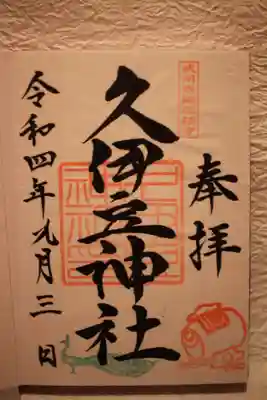 奉拝
久伊豆神社
令和四年元月三日